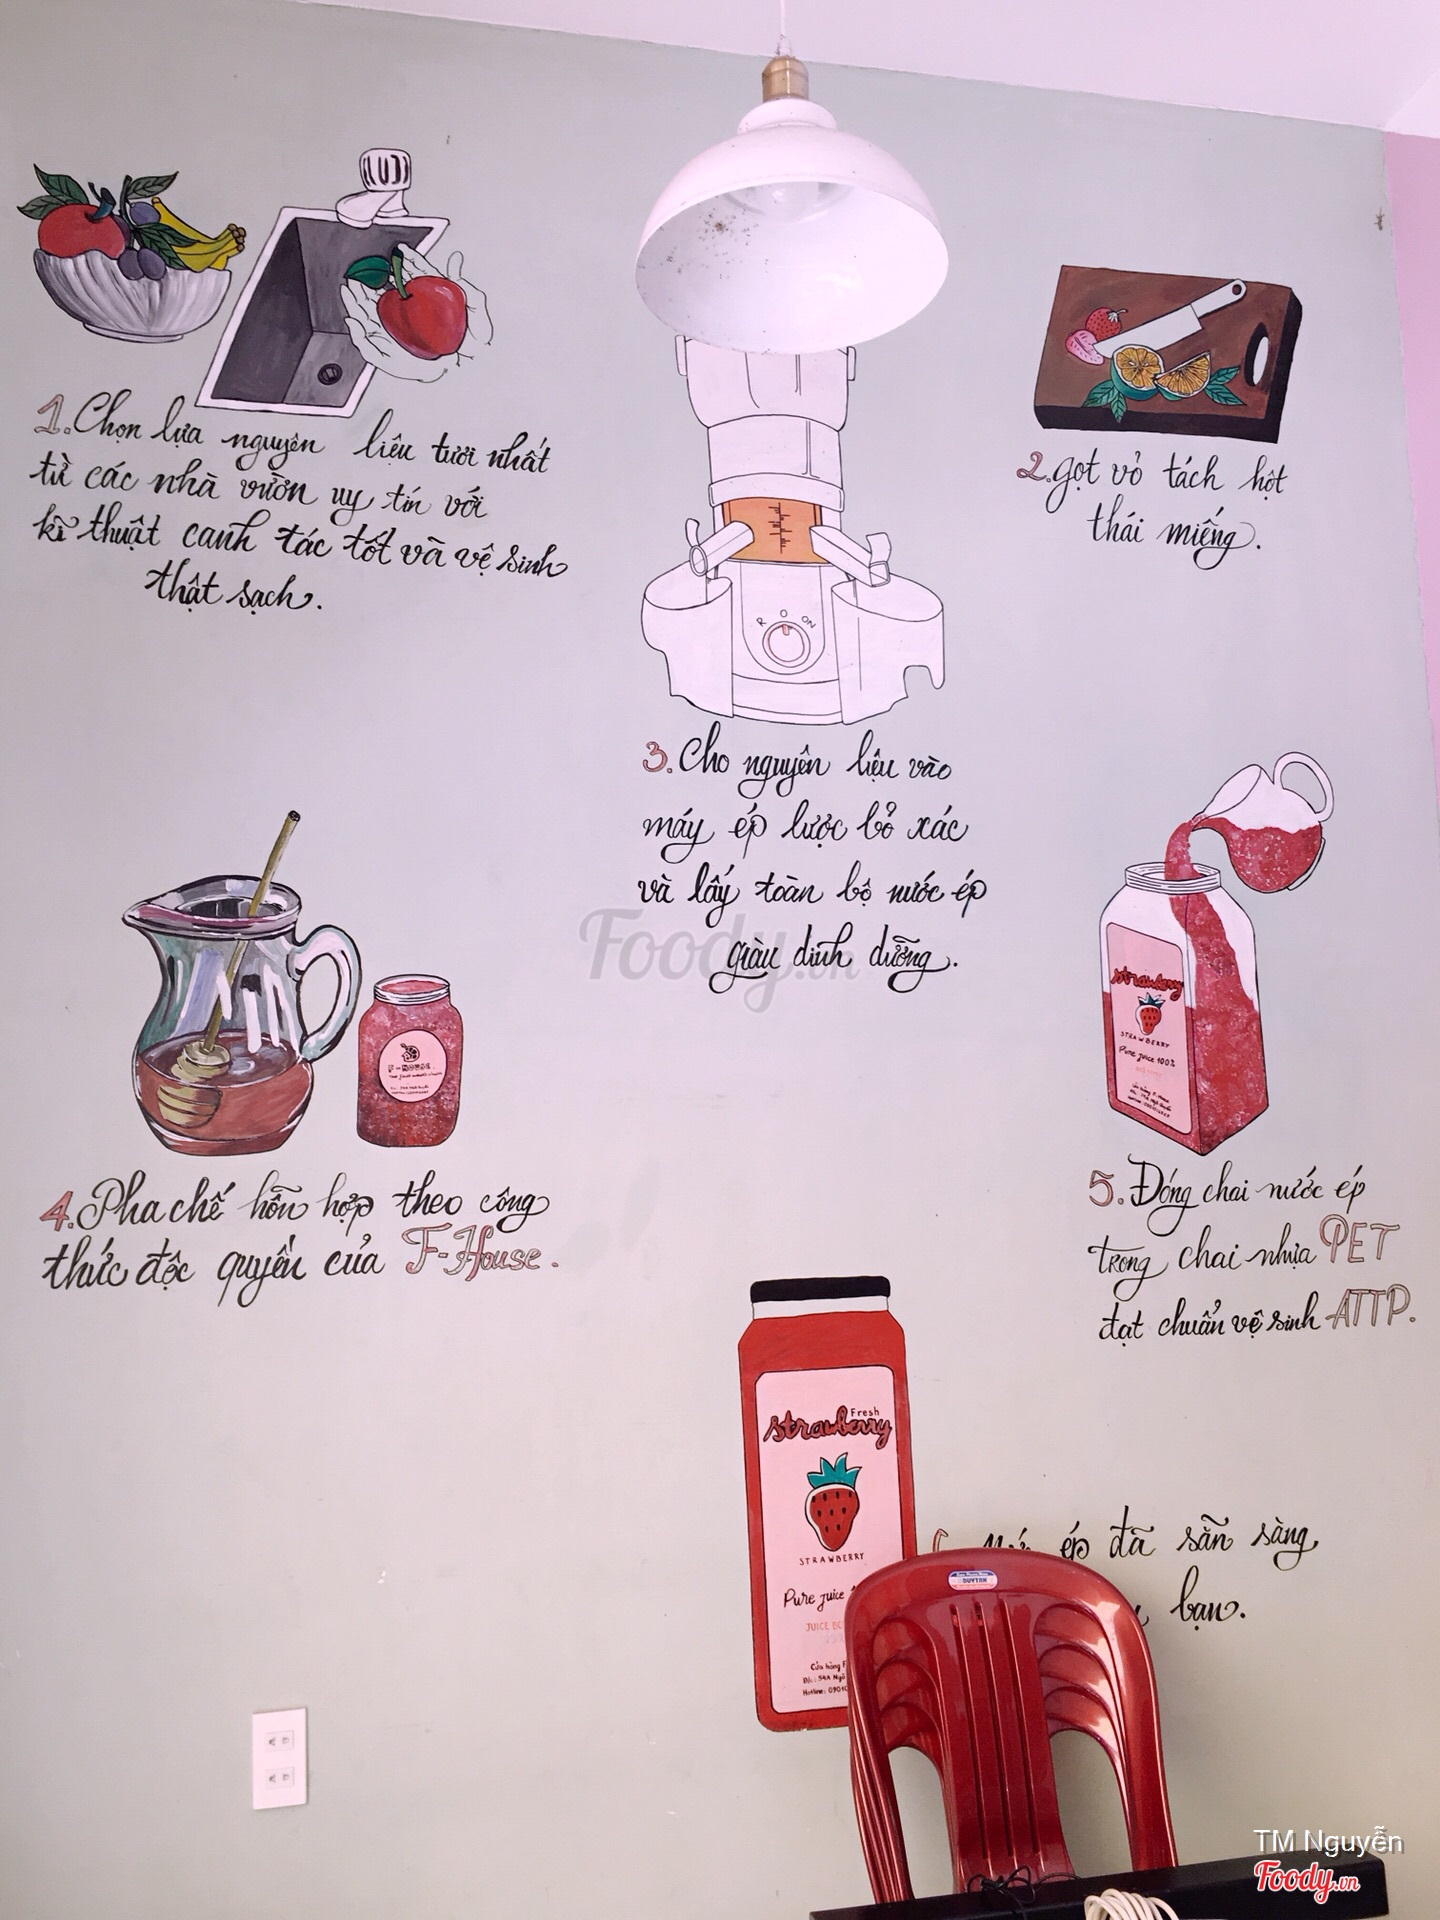 1. Chọn lựa nguyên liệu tươi nhất
từ các nhà vườn uy tín với
kĩ thuật canh tác tốt và vệ sinh
thật sạch.
2. gọt vỏ tách hột
thái miếng.
R O ON
3. Cho nguyên liệu vào
máy ép lược bỏ xác
và lấy toàn bộ nước ép
giàu dinh dưỡng.
Foody.vn
F-HOUSE
4. Pha chế hỗn hợp theo công
thức độc quyền của F-House.
strawberry
STRAWBERRY
Pure juice 100%
5. Đóng chai nước ép
trong chai nhựa PET
đạt chuẩn vệ sinh ATTP.
Fresh
strawberry
STRAWBERRY
Pure juice
JUICE
Cửa hàng F
Đ/c: 54A Ngô
Hotline: 0901
ép đã sẵn sàng
bạn.
DUYTAN
TM Nguyễn
Foody.vn